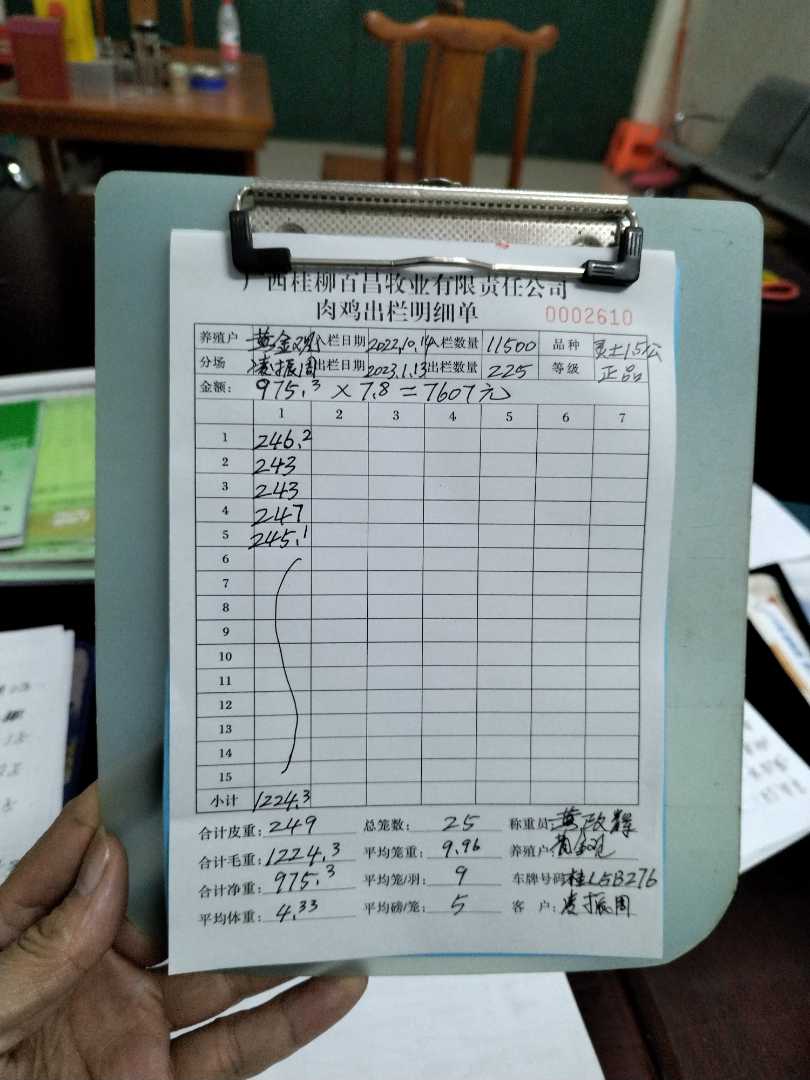 广西桂柳百昌牧业有限责任公司
肉鸡出栏明细单 0002610
养殖户 黄金观 入栏日期 2022.10.14 入栏数量 11500 品种 灵土15公
分场 凌振周 出栏日期 2023.1.13 出栏数量 225 等级 正品
金额: 975.3 × 7.8 = 7607元
1 2 3 4 5 6 7
1 246.2
2 243
3 243
4 247
5 245.1
6
7
8
9
10
11
12
13
14
15
小计 1224.3
合计皮重: 249 总笼数: 25 称重员: 黄政辉
合计毛重: 1224.3 平均笼重: 9.96 养殖户:
合计净重: 975.3 平均笼/羽: 9 车牌号码: 桂L5B276
平均体重: 4.33 平均磅/笼: 5 客 户: 凌振周